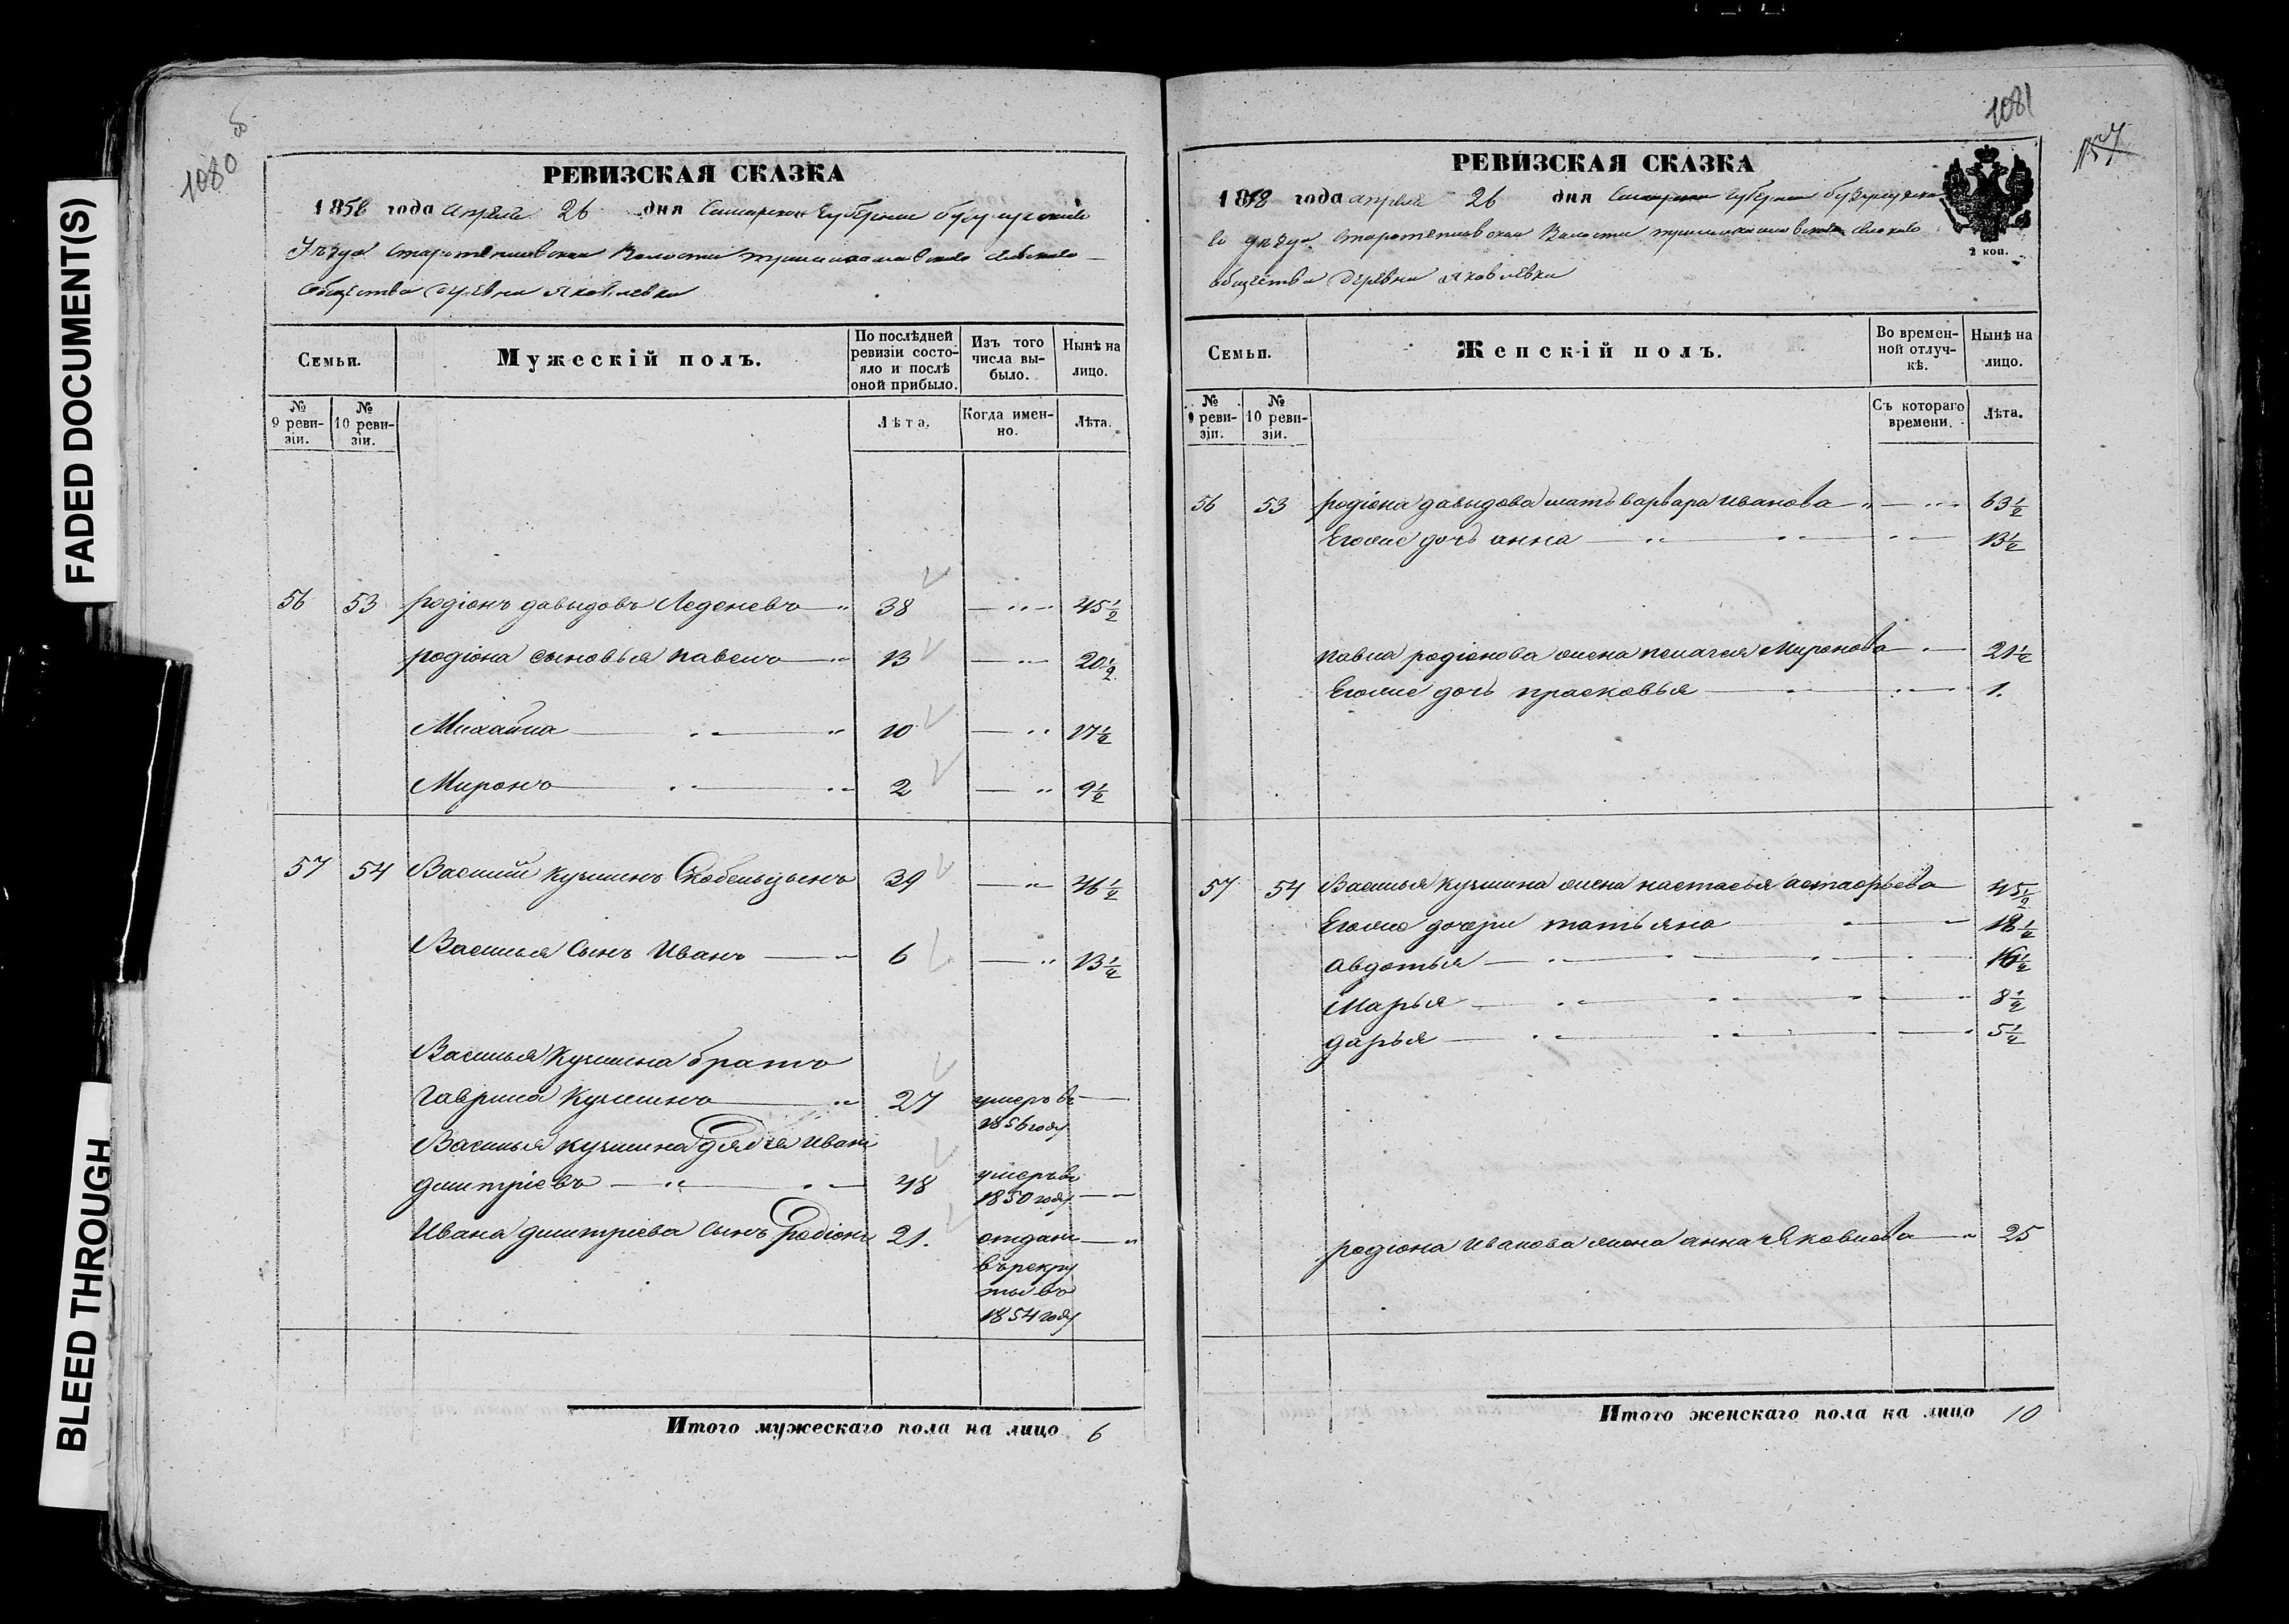 FADED DOCUMENT(S)
BLEED THROUGH
1080 об
РЕВИЗСКАЯ СКАЗКА
1858 года апреля 26 дня Самарской Губернии бузулукскаго
Уѣзда Старотепловской Волости
Общества деревни Яковлевки
Семьи.
Мужескій полъ.
По послѣдней ревизіи состояло и послѣ оной прибыло.
Изъ того числа выбыло.
Нынѣ на лицо.
№ 9 ревизіи.
№ 10 ревизіи.
Лѣта.
Когда именно.
Лѣта.
56 53 родіонъ давыдовъ Леденевъ 38 45½
родіона сыновья павелъ 13 20½
Михайла 10 17½
Миронъ 2 9½
57 54 Василий кузминъ 39 46½
Василья Сынъ Иванъ 6 13½
Василья Кузмина братъ
Гаврила Кузминъ 27 умеръ въ
1856 году
Василья кузмина дядя иванъ
дмитріевъ 48 умеръ въ
1850 году
Ивана дмитріева Сынъ родіонъ 21. отданъ
въ рекру
ты въ
1854 году
Итого мужескаго пола на лицо 6
1081
157
РЕВИЗСКАЯ СКАЗКА
1858 года апреля 26 дня Самарской губернии бузулукска
го уѣзда Старотепловской Волости
общества деревни яковлевки
2 коп.
Семьи.
Женскій полъ.
Во временной отлучкѣ.
Нынѣ на лицо.
№ 9 ревизіи.
№ 10 ревизіи.
Съ котораго времени.
Лѣта.
56 53 родіона давыдова мать варвара иванова 63½
Егоже дочь анна 13½
павла родіонова жена пелагея Миронова 21½
Егоже дочь прасковья 1.
57 54 Василья кузмина жена настасья астафьева 45½
Егоже дочери татьяна 18½
авдотья 16½
Марья 8½
дарья 5½
родіона иванова жена анна яковлева 25
Итого женскаго пола на лицо 10